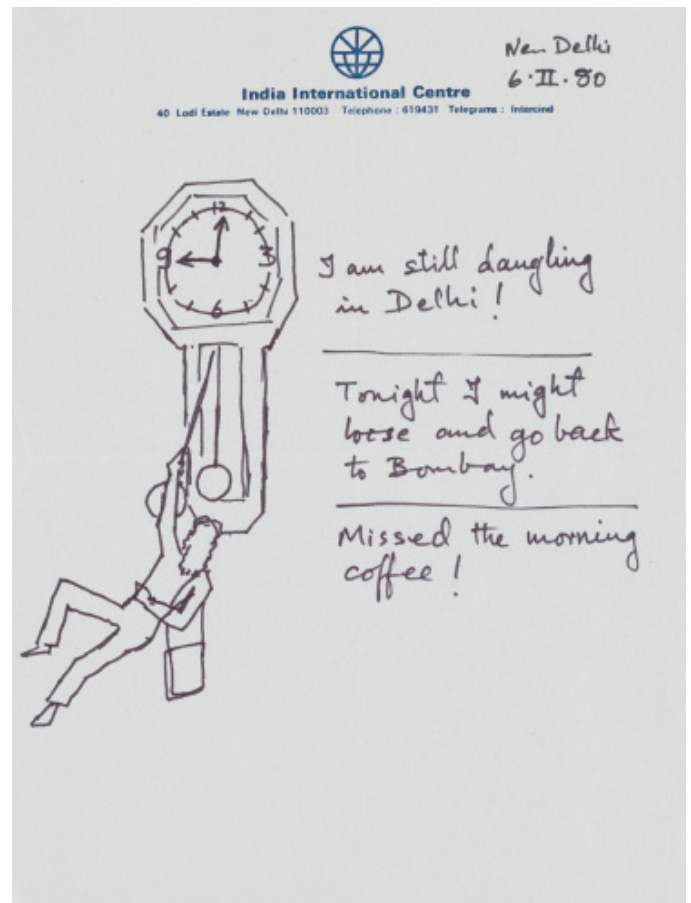 New Delhi
6·II·80
India International Centre
40 Lodi Estate New Delhi 110003 Telephone : 619431 Telegrams : Intercind
12
9 3
6
I am still dangling
in Delhi !
Tonight I might
loose and go back
to Bombay.
Missed the morning
coffee !